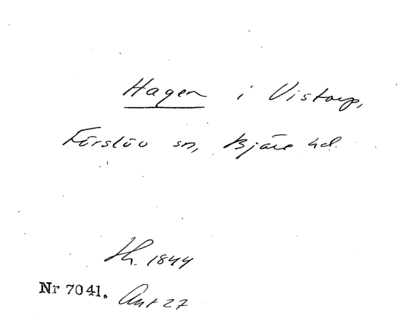 Hagen i Vistorp,
Förslöv sn, Bjäre hd.
Th. 1844
Nr 7041. Ant 27